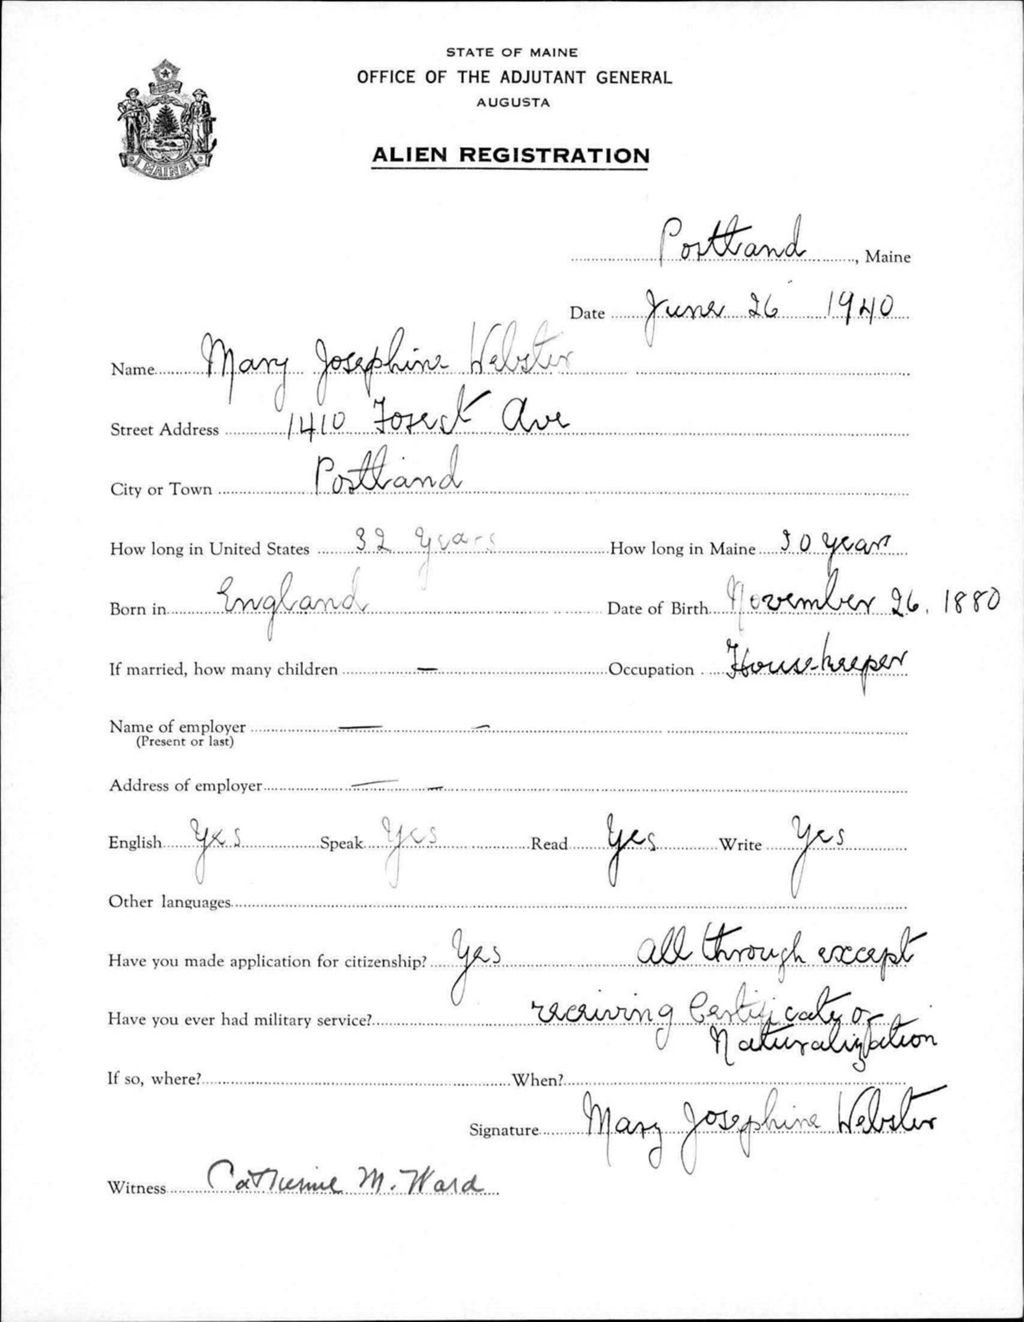 STATE OF MAINE
OFFICE OF THE ADJUTANT GENERAL
AUGUSTA
ALIEN REGISTRATION
MAINE
Portland, Maine
Date June 26 1940
Name Mary Josephine Webster
Street Address 1410 Forest Ave
City or Town Portland
How long in United States 32 Years How long in Maine 30 years
Born in England Date of Birth November 26, 1880
If married, how many children — Occupation Housekeeper
Name of employer — —
(Present or last)
Address of employer — —
English Yes Speak Yes Read Yes Write Yes
Other languages
Have you made application for citizenship? Yes all through except
Have you ever had military service? receiving Certificate of
Naturalization
If so, where? When?
Signature Mary Josephine Webster
Witness Catherine M. Ward